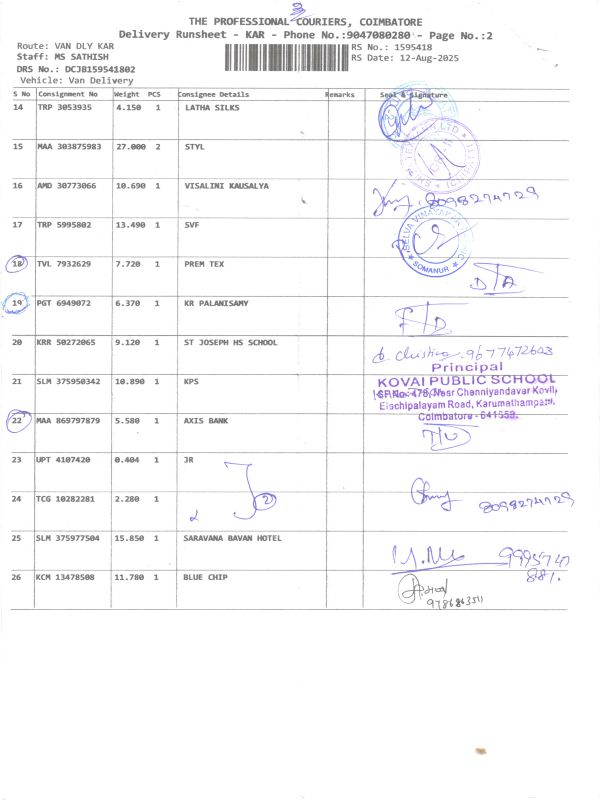 THE PROFESSIONAL COURIERS, COIMBATORE
Delivery Runsheet - KAR - Phone No.:9047080280 - Page No.:2
Route: VAN DLY KAR RS No.: 1595418
Staff: MS SATHISH RS Date: 12-Aug-2025
DRS No.: DCJB159541802
Vehicle: Van Delivery
S No Consignment No Weight PCS Consignee Details Remarks Seal & Signature
14 TRP 3053935 4.150 1 LATHA SILKS
15 MAA 303875983 27.000 2 STYL
16 AMD 30773066 10.690 1 VISALINI KAUSALYA 8098274729
17 TRP 5995802 13.490 1 SVF
SELVA VINAYAKA
SOMANUR
18 TVL 7932629 7.720 1 PREM TEX D/A
19 PGT 6949072 6.370 1 KR PALANISAMY
20 KRR 50272065 9.120 1 ST JOSEPH HS SCHOOL 9677472603
Principal
21 SLM 375950342 10.890 1 KPS KOVAI PUBLIC SCHOOL
SF.No: 476, Near Chenniyandavar Kovil,
Elachipalayam Road, Karumathampatti,
Coimbatore - 641659.
22 MAA 869797879 5.580 1 AXIS BANK
23 UPT 4107420 0.404 1 JR
24 TCG 10282281 2.280 1 2 8098274729
25 SLM 375977504 15.850 1 SARAVANA BAVAN HOTEL 9995740
881.
26 KCM 13478508 11.780 1 BLUE CHIP